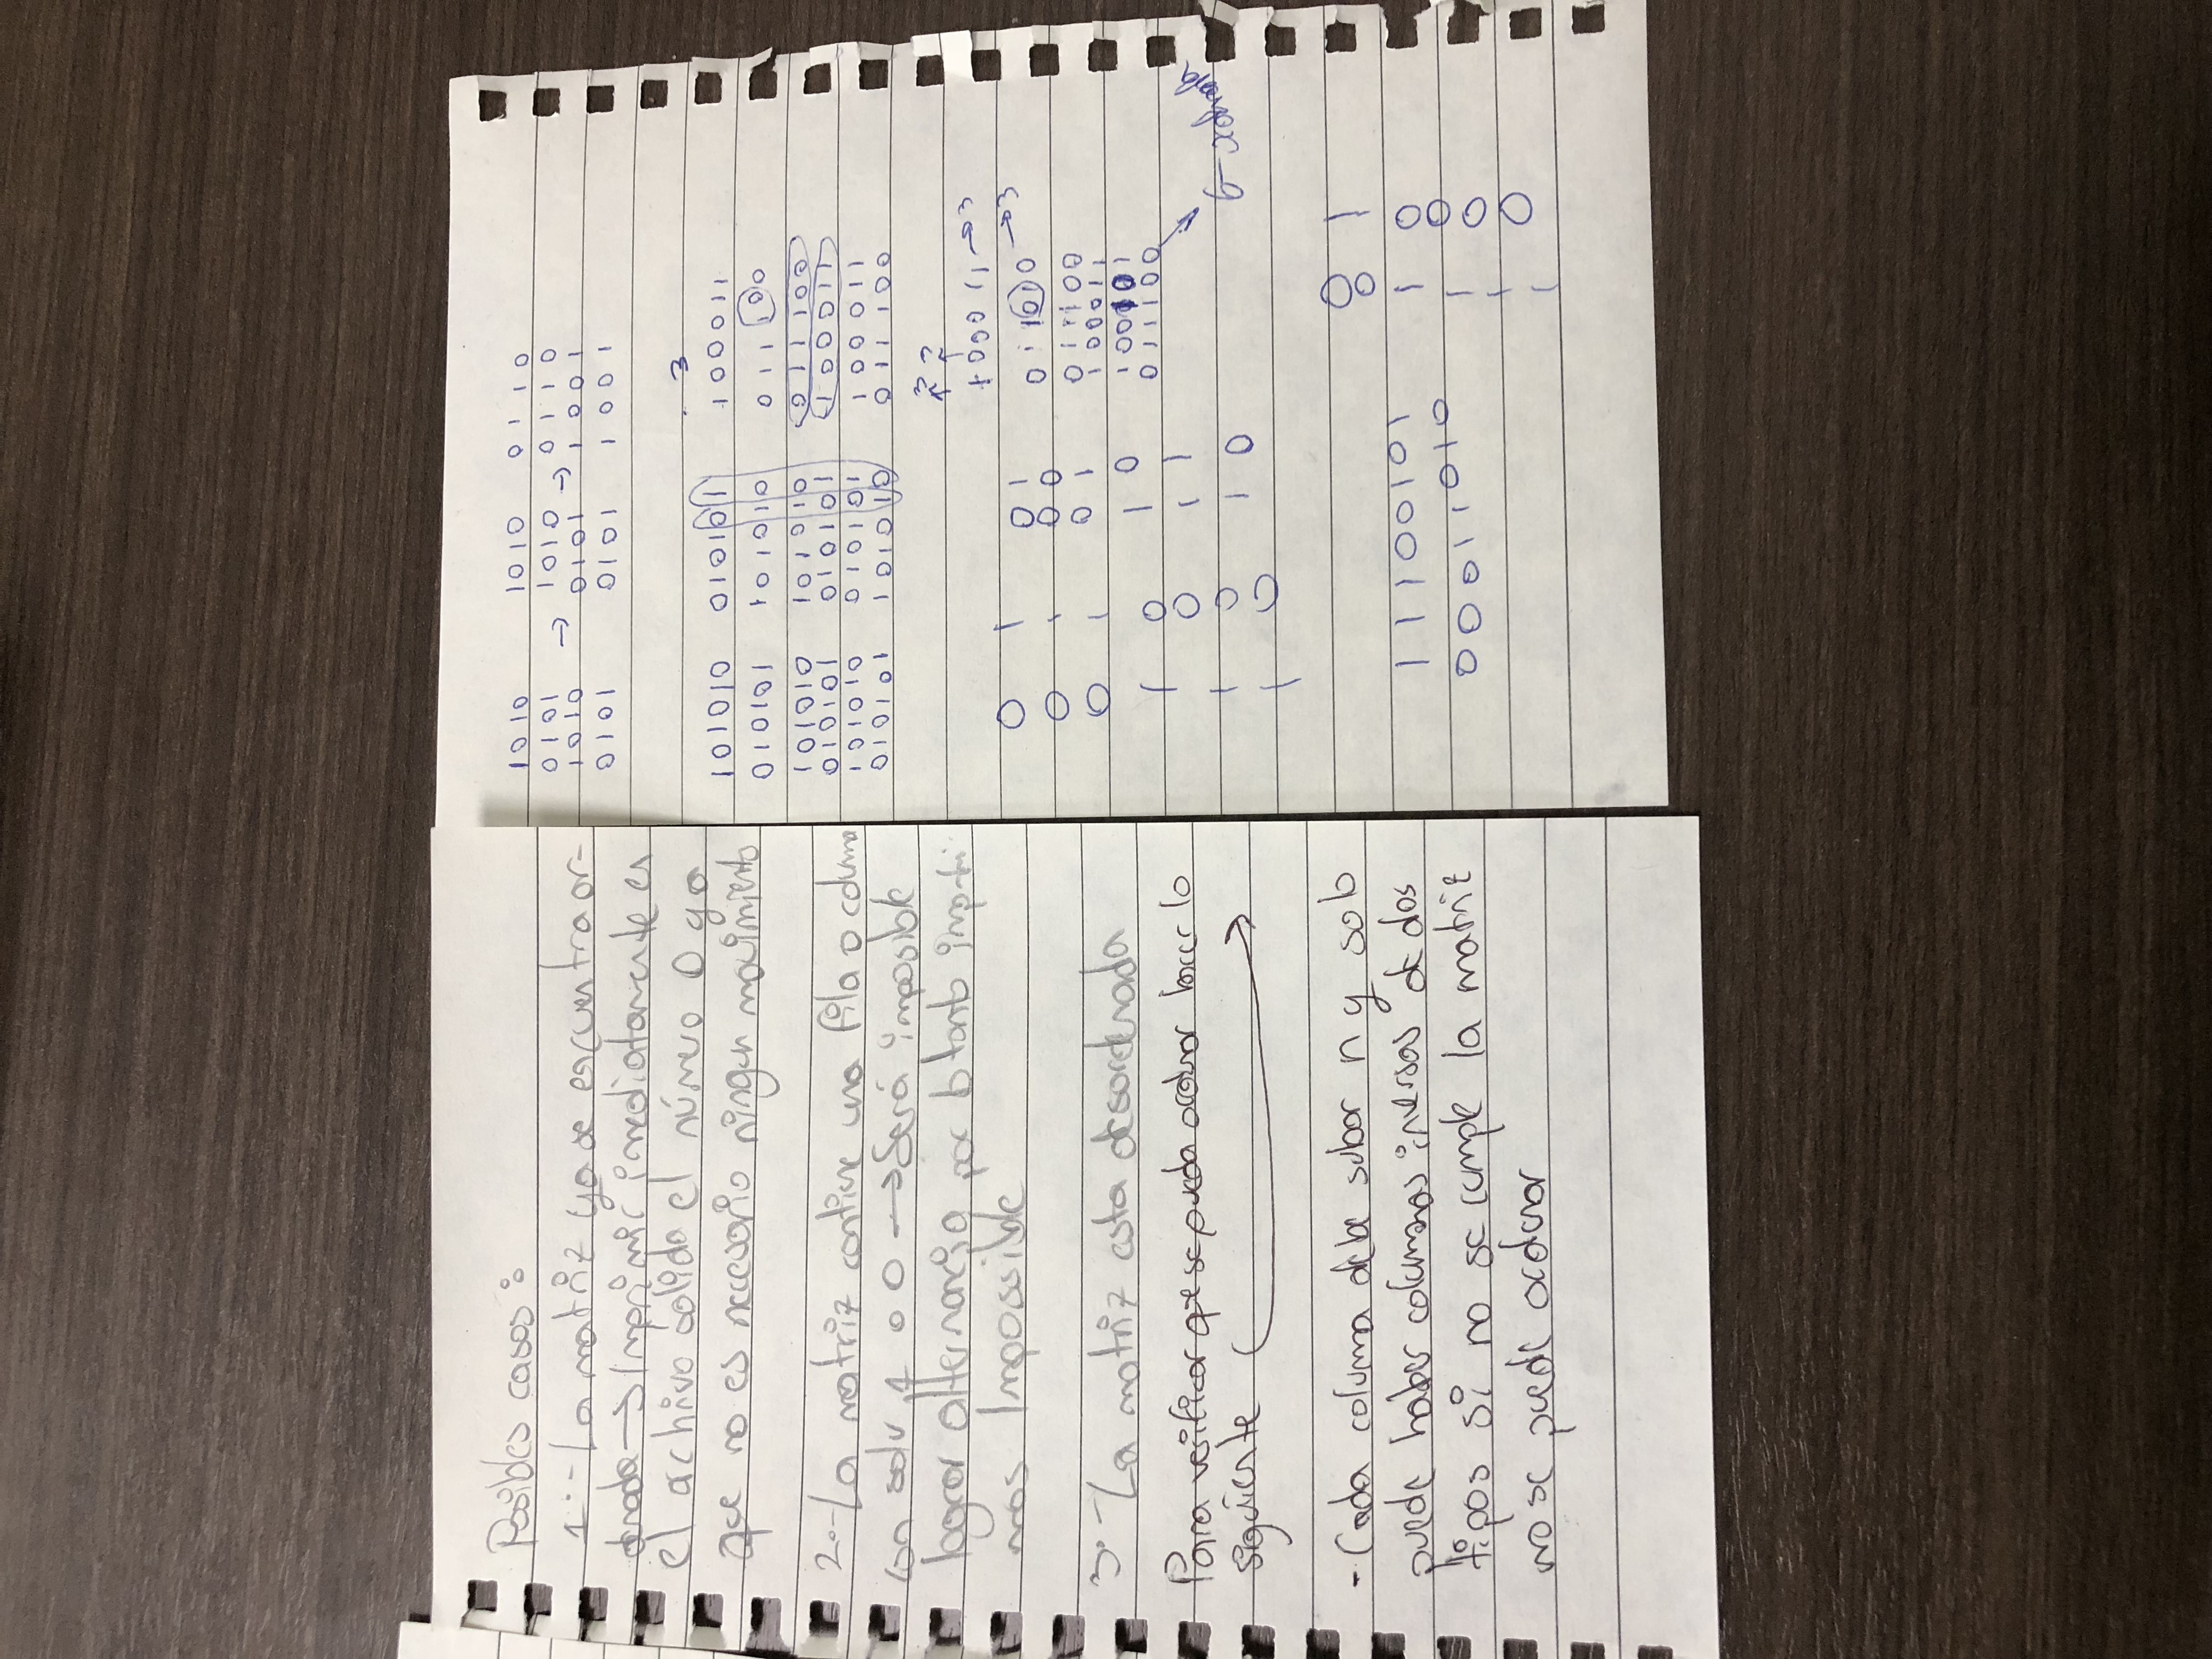 Posibles casos:
1.- La matriz ya se encuentra or-
denada → Imprimir imediatamente en
el archivo salida el número 0 ya
que no es necesario ningun movimiento
2.- La matriz contiene una fila o columna
con solo 1 o 0 → Será imposible
lograr alternancia por lo tanto impri
mos Impossible
3.- La matriz esta desordenada
Para verificar que se pueda ordenar hacer lo
siguiente
- Cada columna debe subar n y solo
puede haber columnas inversas de dos
tipos si no se cumple la matriz
no se puede ordenar
1010 1010 0110
0101 → 1010 → 0110
1010 0101 1001
0101 0101 1001
3
101010 010101 100011
010101 101010 011100
101010 101010 011100
010101 010101 100011
101010 010101 100011
010101 101010 011100
3 3
↑ ↑
100011 → 3
0 1 01 → 3
0 1 00 011100
0 1 01 100011
1 0 10
0 11 011100
1 0 10
1 0
6-
0 1
0 1
11100101 1 0
0
00011010 1 0
1 0
1